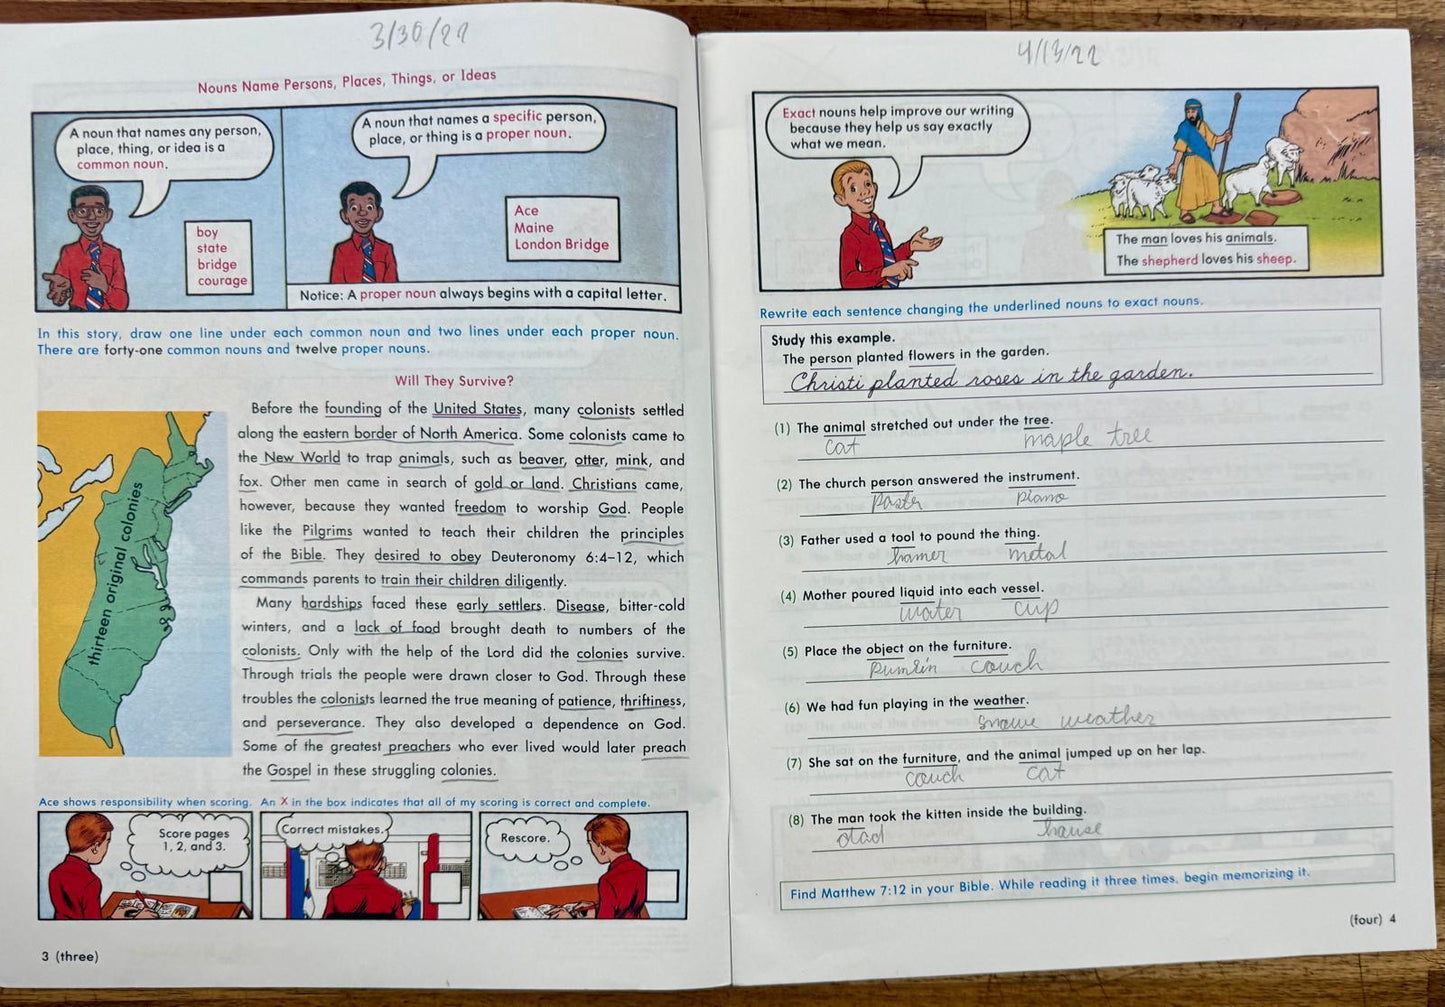 3/30/22
Nouns Name Persons, Places, Things, or Ideas
A noun that names any person,
place, thing, or idea is a
common noun.
boy
state
bridge
courage
A noun that names a specific person,
place, or thing is a proper noun.
Ace
Maine
London Bridge
Notice: A proper noun always begins with a capital letter.
In this story, draw one line under each common noun and two lines under each proper noun.
There are forty-one common nouns and twelve proper nouns.
Will They Survive?
thirteen original colonies
Before the founding of the United States, many colonists settled
along the eastern border of North America. Some colonists came to
the New World to trap animals, such as beaver, otter, mink, and
fox. Other men came in search of gold or land. Christians came,
however, because they wanted freedom to worship God. People
like the Pilgrims wanted to teach their children the principles
of the Bible. They desired to obey Deuteronomy 6:4–12, which
commands parents to train their children diligently.
Many hardships faced these early settlers. Disease, bitter-cold
winters, and a lack of food brought death to numbers of the
colonists. Only with the help of the Lord did the colonies survive.
Through trials the people were drawn closer to God. Through these
troubles the colonists learned the true meaning of patience, thriftiness,
and perseverance. They also developed a dependence on God.
Some of the greatest preachers who ever lived would later preach
the Gospel in these struggling colonies.
Ace shows responsibility when scoring. An X in the box indicates that all of my scoring is correct and complete.
Score pages
1, 2, and 3.
Correct mistakes.
Rescore.
3 (three)
4/13/22
Exact nouns help improve our writing
because they help us say exactly
what we mean.
The man loves his animals.
The shepherd loves his sheep.
Rewrite each sentence changing the underlined nouns to exact nouns.
Study this example.
The person planted flowers in the garden.
Christi planted roses in the garden.
(1) The animal stretched out under the tree.
cat maple tree
(2) The church person answered the instrument.
Paster piano
(3) Father used a tool to pound the thing.
hamer metal
(4) Mother poured liquid into each vessel.
water cup
(5) Place the object on the furniture.
Pumkin couch
(6) We had fun playing in the weather.
snowe weather
(7) She sat on the furniture, and the animal jumped up on her lap.
couch cat
(8) The man took the kitten inside the building.
dad house
Find Matthew 7:12 in your Bible. While reading it three times, begin memorizing it.
(four) 4